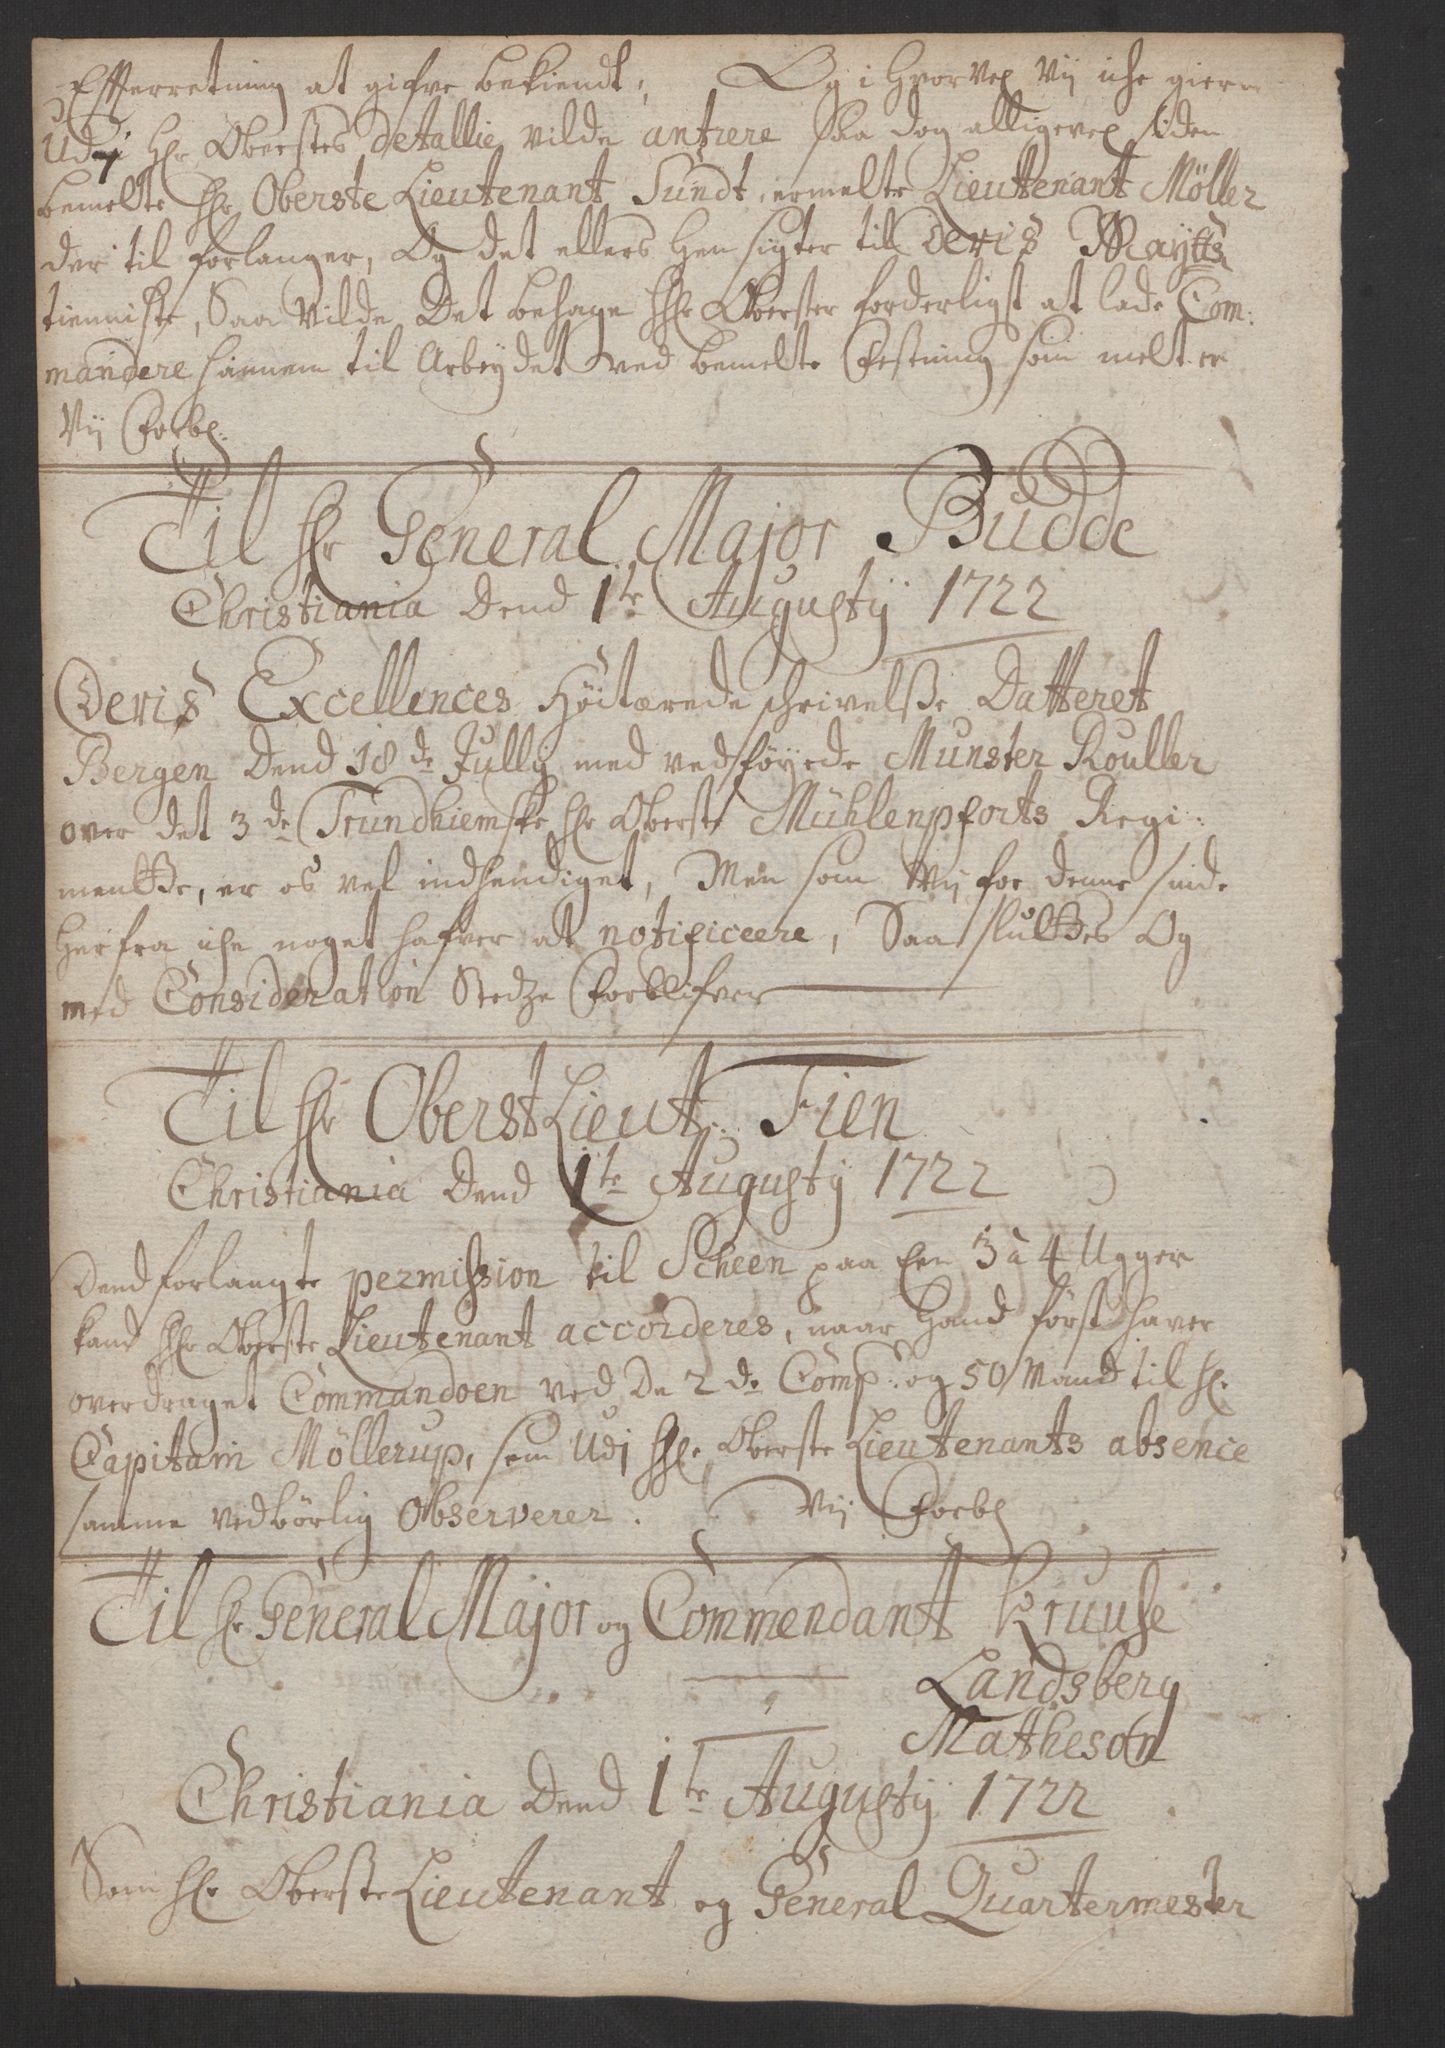 Efterretning at gifve bekiendt; Og i hvorvel Vij iche gierne
Udj Hr Oberstes detallie vilde antrere saa dog alligevel siden
bemelte Hr Oberste Lieutenant Sundt, ermelte Lieutenant Möller
der til forlanger, Og det ellers hensigter til Deris Maÿtts
tienniste, Saa vilde Det behage Hr Oberster forderligst at lade Com:
mandere hannem til Arbeydet ved bemelte Festning som meltter
Vij Forbl:
Til Hr General Major Budde
Christiania Dend 1te Augustij 1722
Deris Excellences Höitærede schrivelsse Datteret
Bergen Dend 18de Jullij med vedføyede Munster Rouller
over det 3de Trundhiemske Hr Oberste Mühlenpforts Regi:
mentte, er os vel indhendiget, Men som Vij for denne sinde
herfra iche noget hafver at notificeere, Saa sluttes Og
med Consideration Stedze Forblifver
Til Hr Oberst Lieut: Fien
Christiania Dend 1te Augustij 1722
Dend forlangte permission til Scheen paa Een 3 a 4 Ugger
kand Hr Oberste Lieutenant accorderes, naar hand først haver
overdraget Commandoen ved De 2de Comp: og 50 Mand til Hr
Capitain Möllerup, som Udj Hr Oberste Lieutenants absence
samme vedbörlig Observerer. Vij Forbl
Til Hr General Major og Commendant Kruuse
Landsberg
Matheson
Christiania Dend 1te Augustij 1722
Som Hr Oberste Lieutenant og General Quartermester